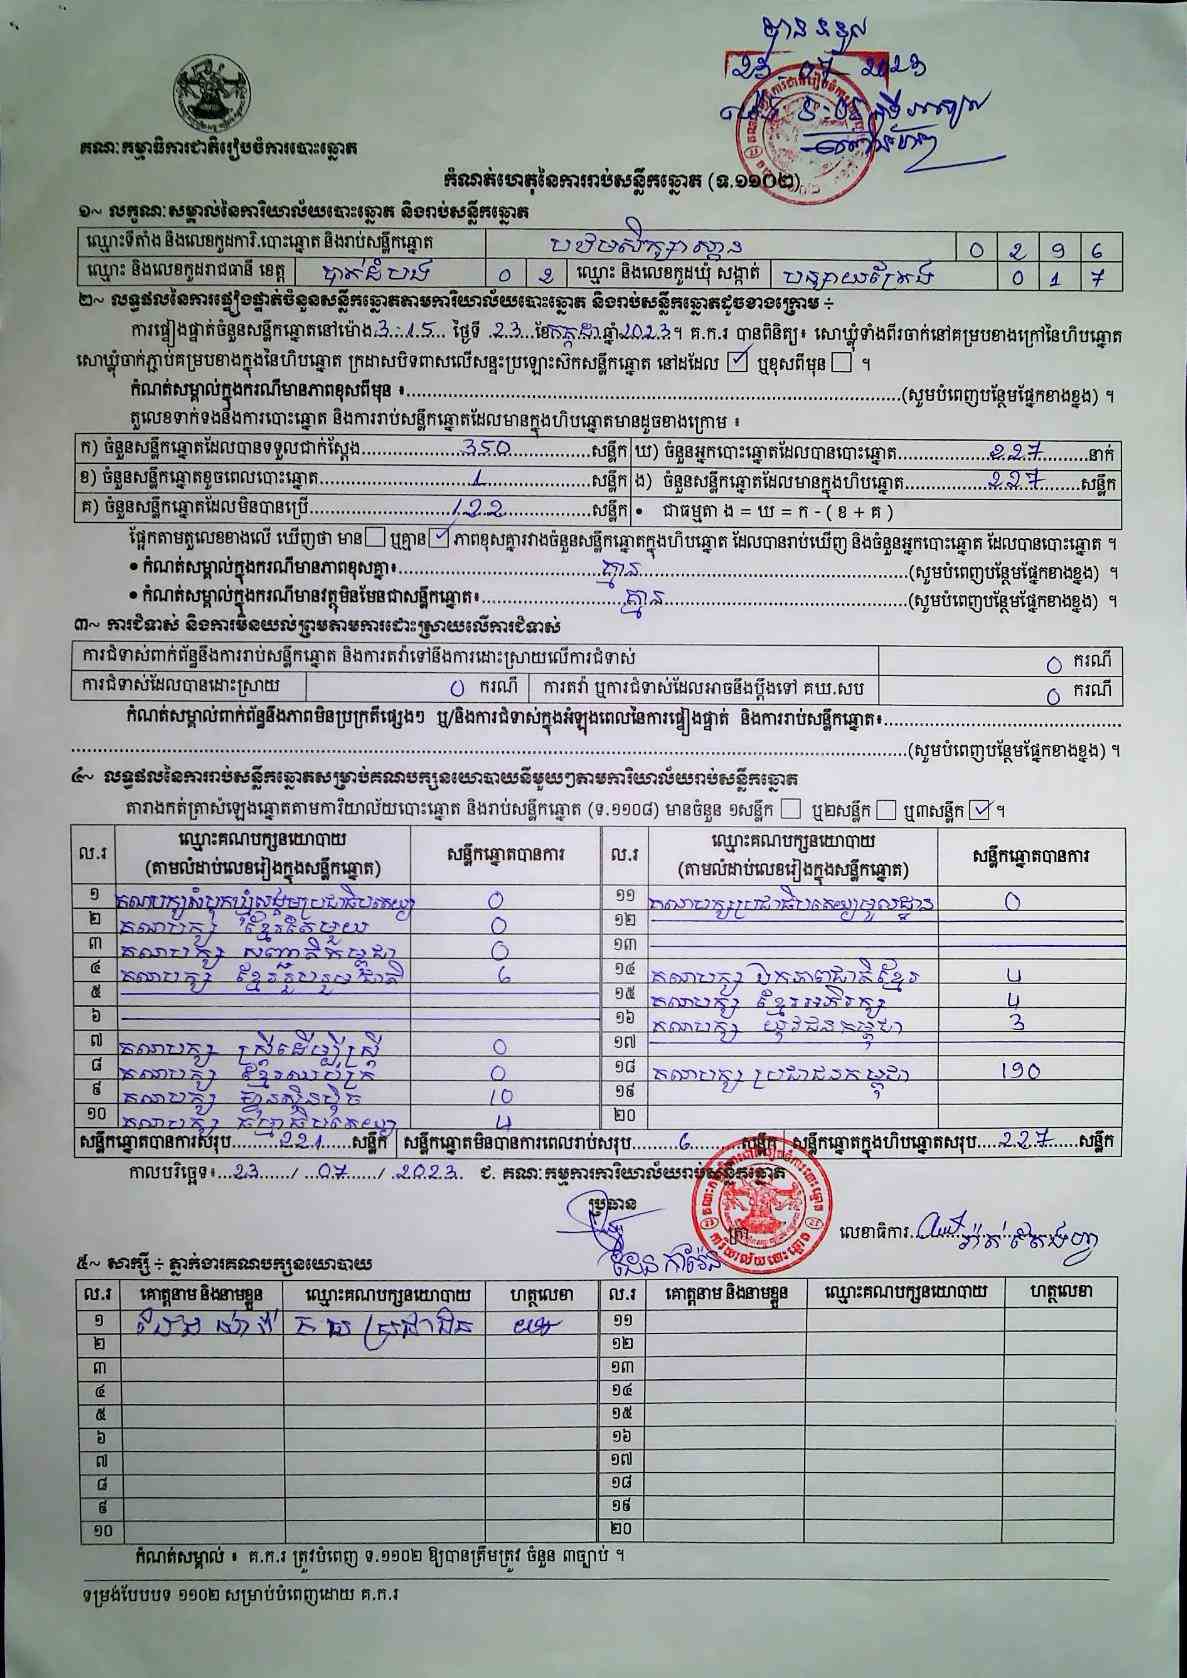 បានទទួល
23 07 2023
គណៈកម្មាធិការជាតិរៀបចំការបោះឆ្នោត
កំណត់ហេតុនៃការរាប់សន្លឹកឆ្នោត (ទ.១១០២)
១~ លក្ខណៈសម្គាល់នៃការិយាល័យបោះឆ្នោត និងរាប់សន្លឹកឆ្នោត
ឈ្មោះទីតាំង និងលេខកូដការិ.បោះឆ្នោត និងរាប់សន្លឹកឆ្នោត បឋមសិក្សាស្ពាន 0 2 9 6
ឈ្មោះ និងលេខកូដរាជធានី ខេត្ត បាត់ដំបង 0 2 ឈ្មោះ និងលេខកូដឃុំ សង្កាត់ បន្សាយត្រែង 0 1 7
២~ លទ្ធផលនៃការផ្ទៀងផ្ទាត់ចំនួនសន្លឹកឆ្នោតតាមការិយាល័យបោះឆ្នោត និងរាប់សន្លឹកឆ្នោតដូចខាងក្រោម ÷
ការផ្ទៀងផ្ទាត់ចំនួនសន្លឹកឆ្នោតនៅម៉ោង 3:15 ថ្ងៃទី 23 ខែកក្កដា ឆ្នាំ 2023 ។ គ.ក.រ បានពិនិត្យ៖ សោឃ្លុំទាំងពីរចាក់នៅគម្របខាងក្រៅនៃហិបឆ្នោត
សោឃ្លុំចាក់ភ្ជាប់គម្របខាងក្នុងនៃហិបឆ្នោត ក្រដាសបិទពាសលើសន្ទះប្រឡោះស៊កសន្លឹកឆ្នោត នៅដដែល ☑ ឬខុសពីមុន ☐ ។
កំណត់សម្គាល់ក្នុងករណីមានភាពខុសពីមុន ៖..........(សូមបំពេញបន្ថែមផ្នែកខាងខ្នង) ។
តួលេខទាក់ទងនឹងការបោះឆ្នោត និងការរាប់សន្លឹកឆ្នោតដែលមានក្នុងហិបឆ្នោតមានដូចខាងក្រោម ៖
ក) ចំនួនសន្លឹកឆ្នោតដែលបានទទួលជាក់ស្តែង 350 សន្លឹក ឃ) ចំនួនអ្នកបោះឆ្នោតដែលបានបោះឆ្នោត 227 នាក់
ខ) ចំនួនសន្លឹកឆ្នោតខូចពេលបោះឆ្នោត 1 សន្លឹក ង) ចំនួនសន្លឹកឆ្នោតដែលមានក្នុងហិបឆ្នោត 227 សន្លឹក
គ) ចំនួនសន្លឹកឆ្នោតដែលមិនបានប្រើ 122 សន្លឹក • ជាធម្មតា ង = ឃ = ក - ( ខ + គ )
ផ្អែកតាមតួលេខខាងលើ ឃើញថា មាន ☐ ឬគ្មាន ☑ ភាពខុសគ្នារវាងចំនួនសន្លឹកឆ្នោតក្នុងហិបឆ្នោត ដែលបានរាប់ឃើញ និងចំនួនអ្នកបោះឆ្នោត ដែលបានបោះឆ្នោត ។
• កំណត់សម្គាល់ក្នុងករណីមានភាពខុសគ្នា៖ គ្មាន (សូមបំពេញបន្ថែមផ្នែកខាងខ្នង) ។
• កំណត់សម្គាល់ក្នុងករណីមានវត្ថុមិនមែនជាសន្លឹកឆ្នោត៖ គ្មាន (សូមបំពេញបន្ថែមផ្នែកខាងខ្នង) ។
៣~ ការជំទាស់ និងការមិនយល់ព្រមតាមការដោះស្រាយលើការជំទាស់
ការជំទាស់ពាក់ព័ន្ធនឹងការរាប់សន្លឹកឆ្នោត និងការតវ៉ាទៅនឹងការដោះស្រាយលើការជំទាស់ 0 ករណី
ការជំទាស់ដែលបានដោះស្រាយ 0 ករណី ការតវ៉ា ឬការជំទាស់ដែលអាចនឹងប្តឹងទៅ គឃ.សប 0 ករណី
កំណត់សម្គាល់ពាក់ព័ន្ធនឹងភាពមិនប្រក្រតីផ្សេងៗ ឬ/និងការជំទាស់ក្នុងអំឡុងពេលនៃការផ្ទៀងផ្ទាត់ និងការរាប់សន្លឹកឆ្នោត៖..........
..........(សូមបំពេញបន្ថែមផ្នែកខាងខ្នង) ។
៤~ លទ្ធផលនៃការរាប់សន្លឹកឆ្នោតសម្រាប់គណបក្សនយោបាយនីមួយៗតាមការិយាល័យរាប់សន្លឹកឆ្នោត
តារាងកត់ត្រាសំឡេងឆ្នោតតាមការិយាល័យបោះឆ្នោត និងរាប់សន្លឹកឆ្នោត (ទ.១១០៨) មានចំនួន ១សន្លឹក ☐ ឬ២សន្លឹក ☐ ឬ៣សន្លឹក ☑ ។
ល.រ ឈ្មោះគណបក្សនយោបាយ (តាមលំដាប់លេខរៀងក្នុងសន្លឹកឆ្នោត) សន្លឹកឆ្នោតបានការ ល.រ ឈ្មោះគណបក្សនយោបាយ (តាមលំដាប់លេខរៀងក្នុងសន្លឹកឆ្នោត) សន្លឹកឆ្នោតបានការ
១ គណបក្សសំបុកឃ្មុំសង្គមប្រជាធិបតេយ្យ 0 ១១ គណបក្សប្រជាធិបតេយ្យមូលដ្ឋាន 0
២ គណបក្ស ខ្មែរតែមួយ 0 ១២
៣ គណបក្ស សញ្ជាតិកម្ពុជា 0 ១៣
៤ គណបក្ស ខ្មែររួបរួមជាតិ 6 ១៤ គណបក្ស ឯកភាពជាតិខ្មែរ 4
៥ ១៥ គណបក្ស ខ្មែរអភិរក្ស 4
៦ ១៦ គណបក្ស យុវជនកម្ពុជា 3
៧ គណបក្ស ស្ត្រីដើម្បីស្ត្រី 0 ១៧
៨ គណបក្ស ខ្មែរឈប់ក្រ 0 ១៨ គណបក្ស ប្រជាជនកម្ពុជា 190
៩ គណបក្ស ហ្វ៊ុនស៊ិនប៉ិច 10 ១៩
១០ គណបក្ស ធម្មាធិបតេយ្យ 4 ២០
សន្លឹកឆ្នោតបានការសរុប 221 សន្លឹក សន្លឹកឆ្នោតមិនបានការពេលរាប់សរុប 6 សន្លឹក សន្លឹកឆ្នោតក្នុងហិបឆ្នោតសរុប 227 សន្លឹក
កាលបរិច្ឆេទ៖ 23 / 07 / 2023 ជ. គណៈកម្មការការិយាល័យរាប់សន្លឹកឆ្នោត
ប្រធាន ត្រា លេខាធិការ
៥~ សាក្សី ÷ ភ្នាក់ងារគណបក្សនយោបាយ
ល.រ គោត្តនាម និងនាមខ្លួន ឈ្មោះគណបក្សនយោបាយ ហត្ថលេខា ល.រ គោត្តនាម និងនាមខ្លួន ឈ្មោះគណបក្សនយោបាយ ហត្ថលេខា
១ ១១
២ ១២
៣ ១៣
៤ ១៤
៥ ១៥
៦ ១៦
៧ ១៧
៨ ១៨
៩ ១៩
១០ ២០
កំណត់សម្គាល់ ៖ គ.ក.រ ត្រូវបំពេញ ទ.១១០២ ឱ្យបានត្រឹមត្រូវ ចំនួន ៣ច្បាប់ ។
ទម្រង់បែបបទ ១១០២ សម្រាប់បំពេញដោយ គ.ក.រ